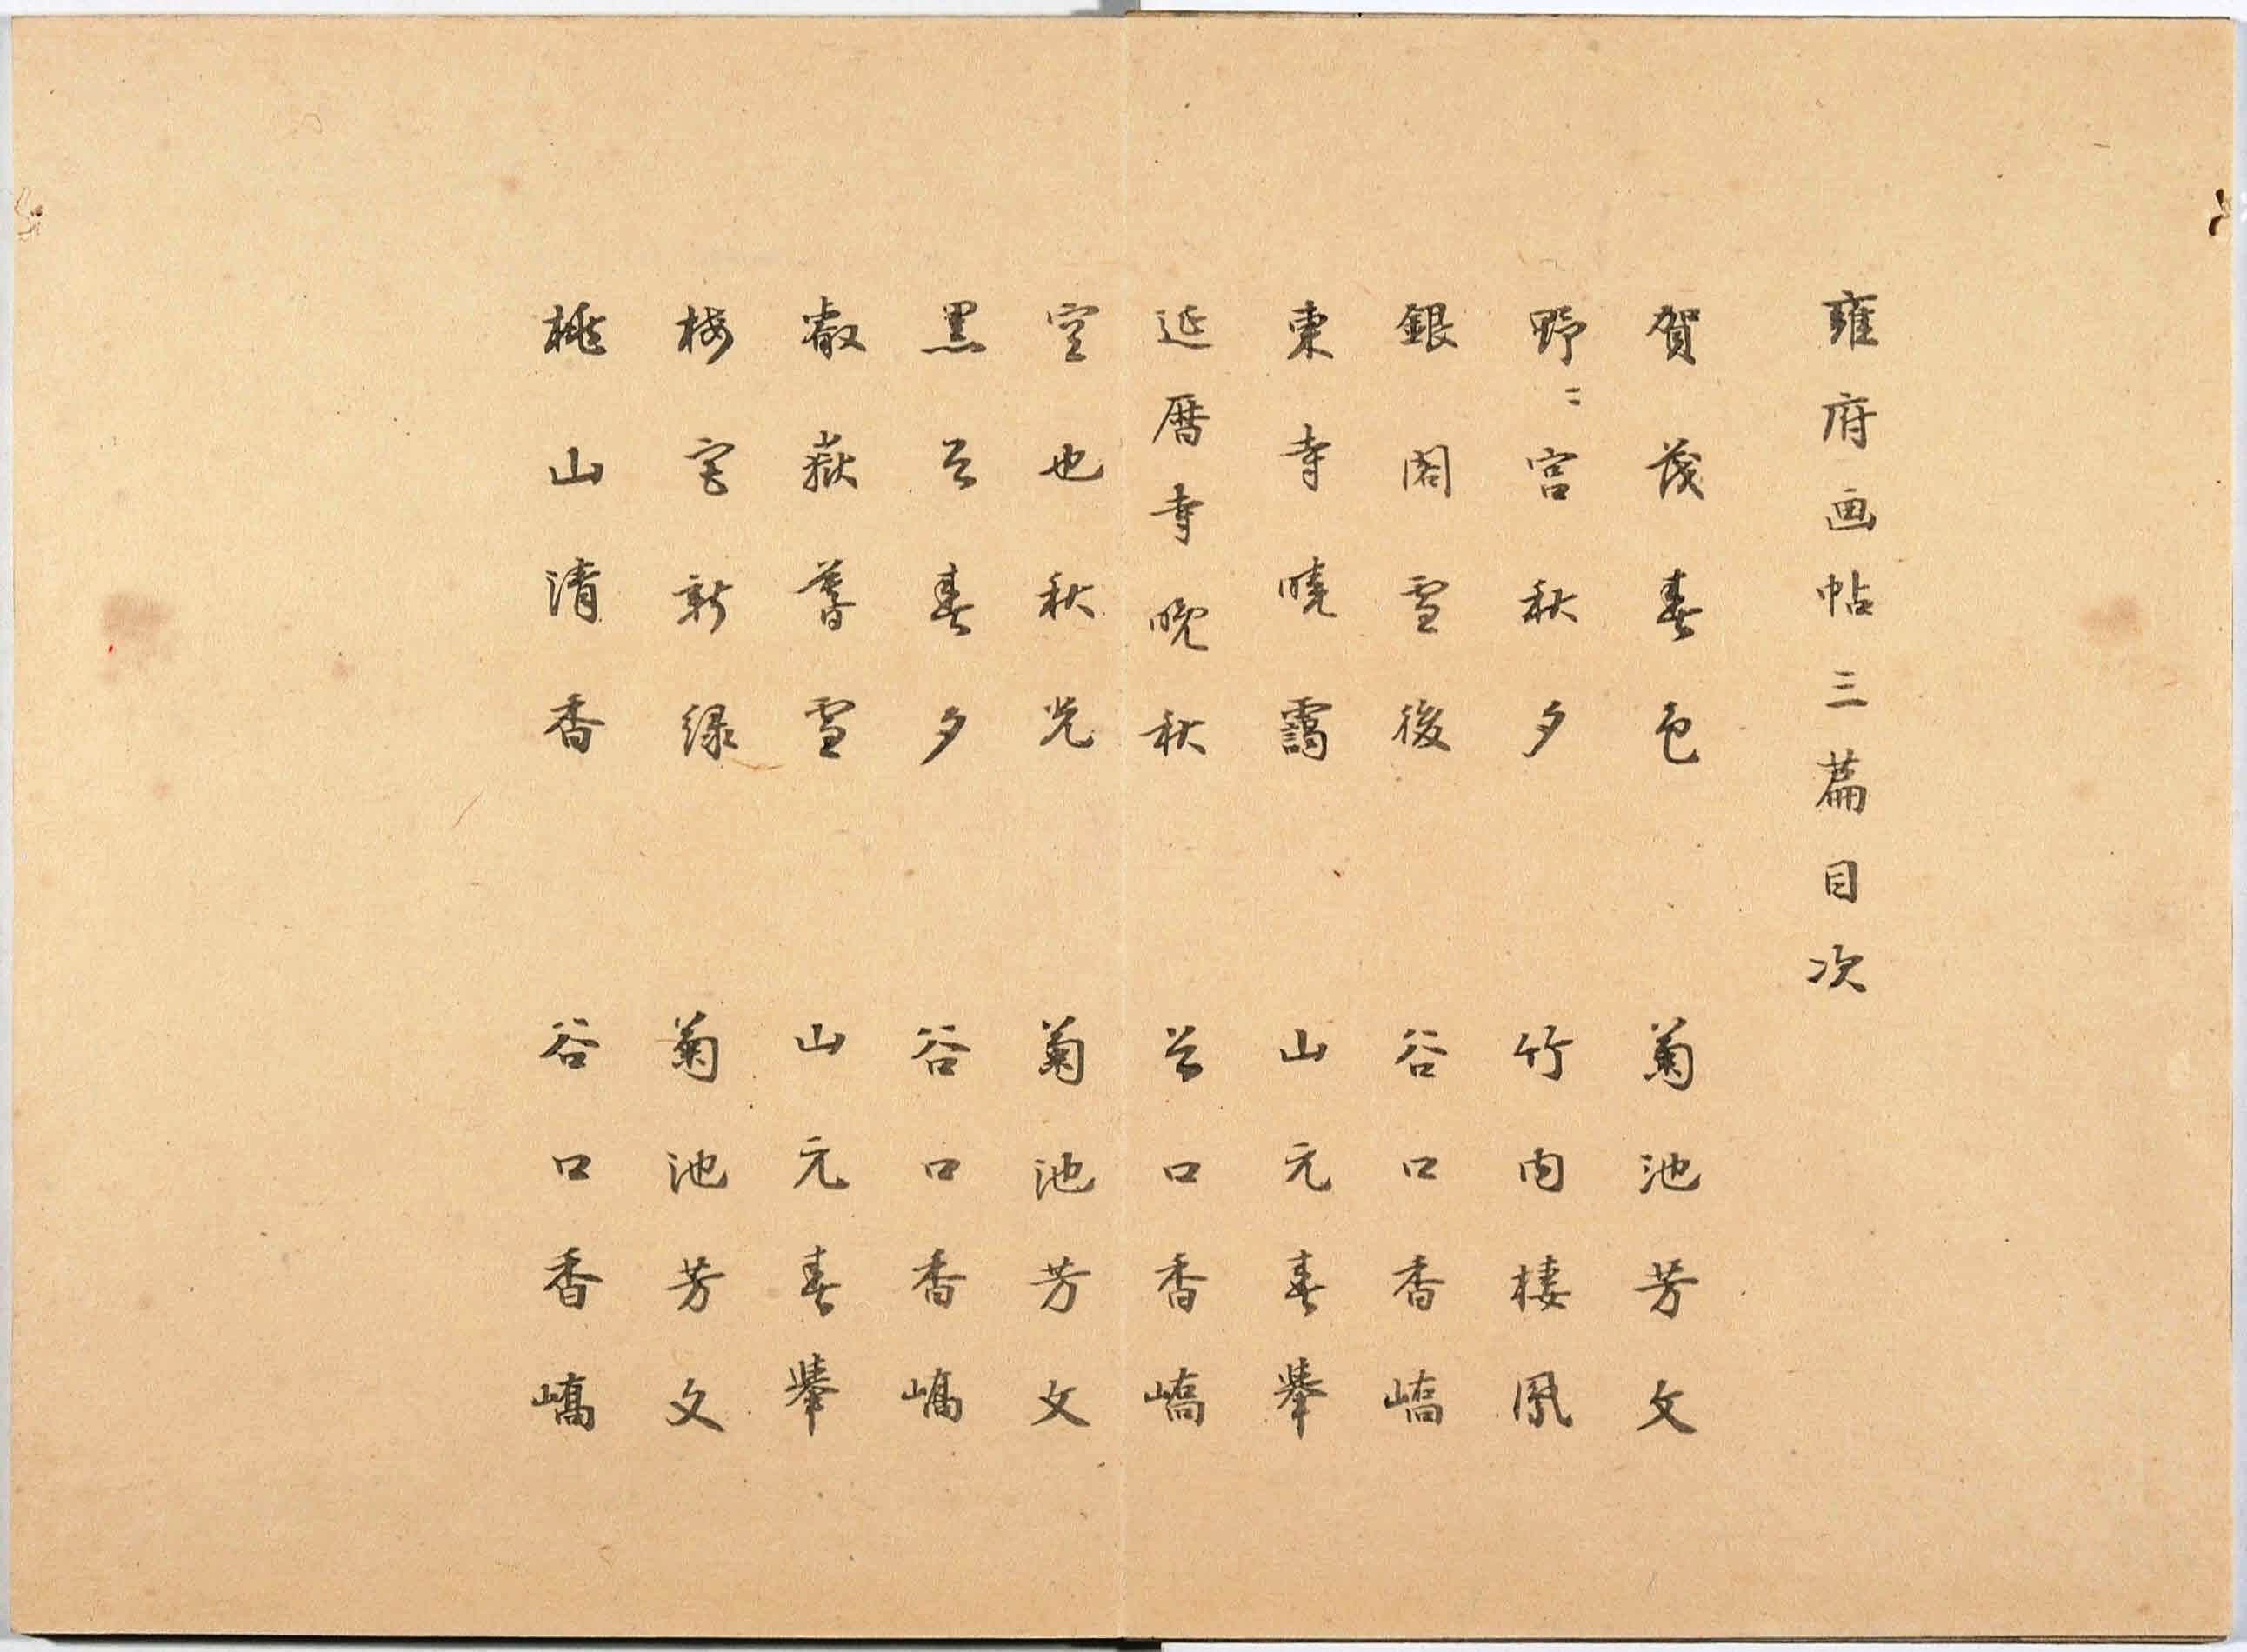 雍府画帖三篇目次
賀茂春色 菊池芳文
野〻宮秋夕 竹内棲鳳
銀閣雪後 谷口香嶠
東寺曉靄 山元春舉
延暦寺晩秋 谷口香嶠
空也秋光 菊池芳文
黒谷春夕 谷口香嶠
叡嶽暮雪 山元春舉
梅宮新緑 菊池芳文
桃山清香 谷口香嶠